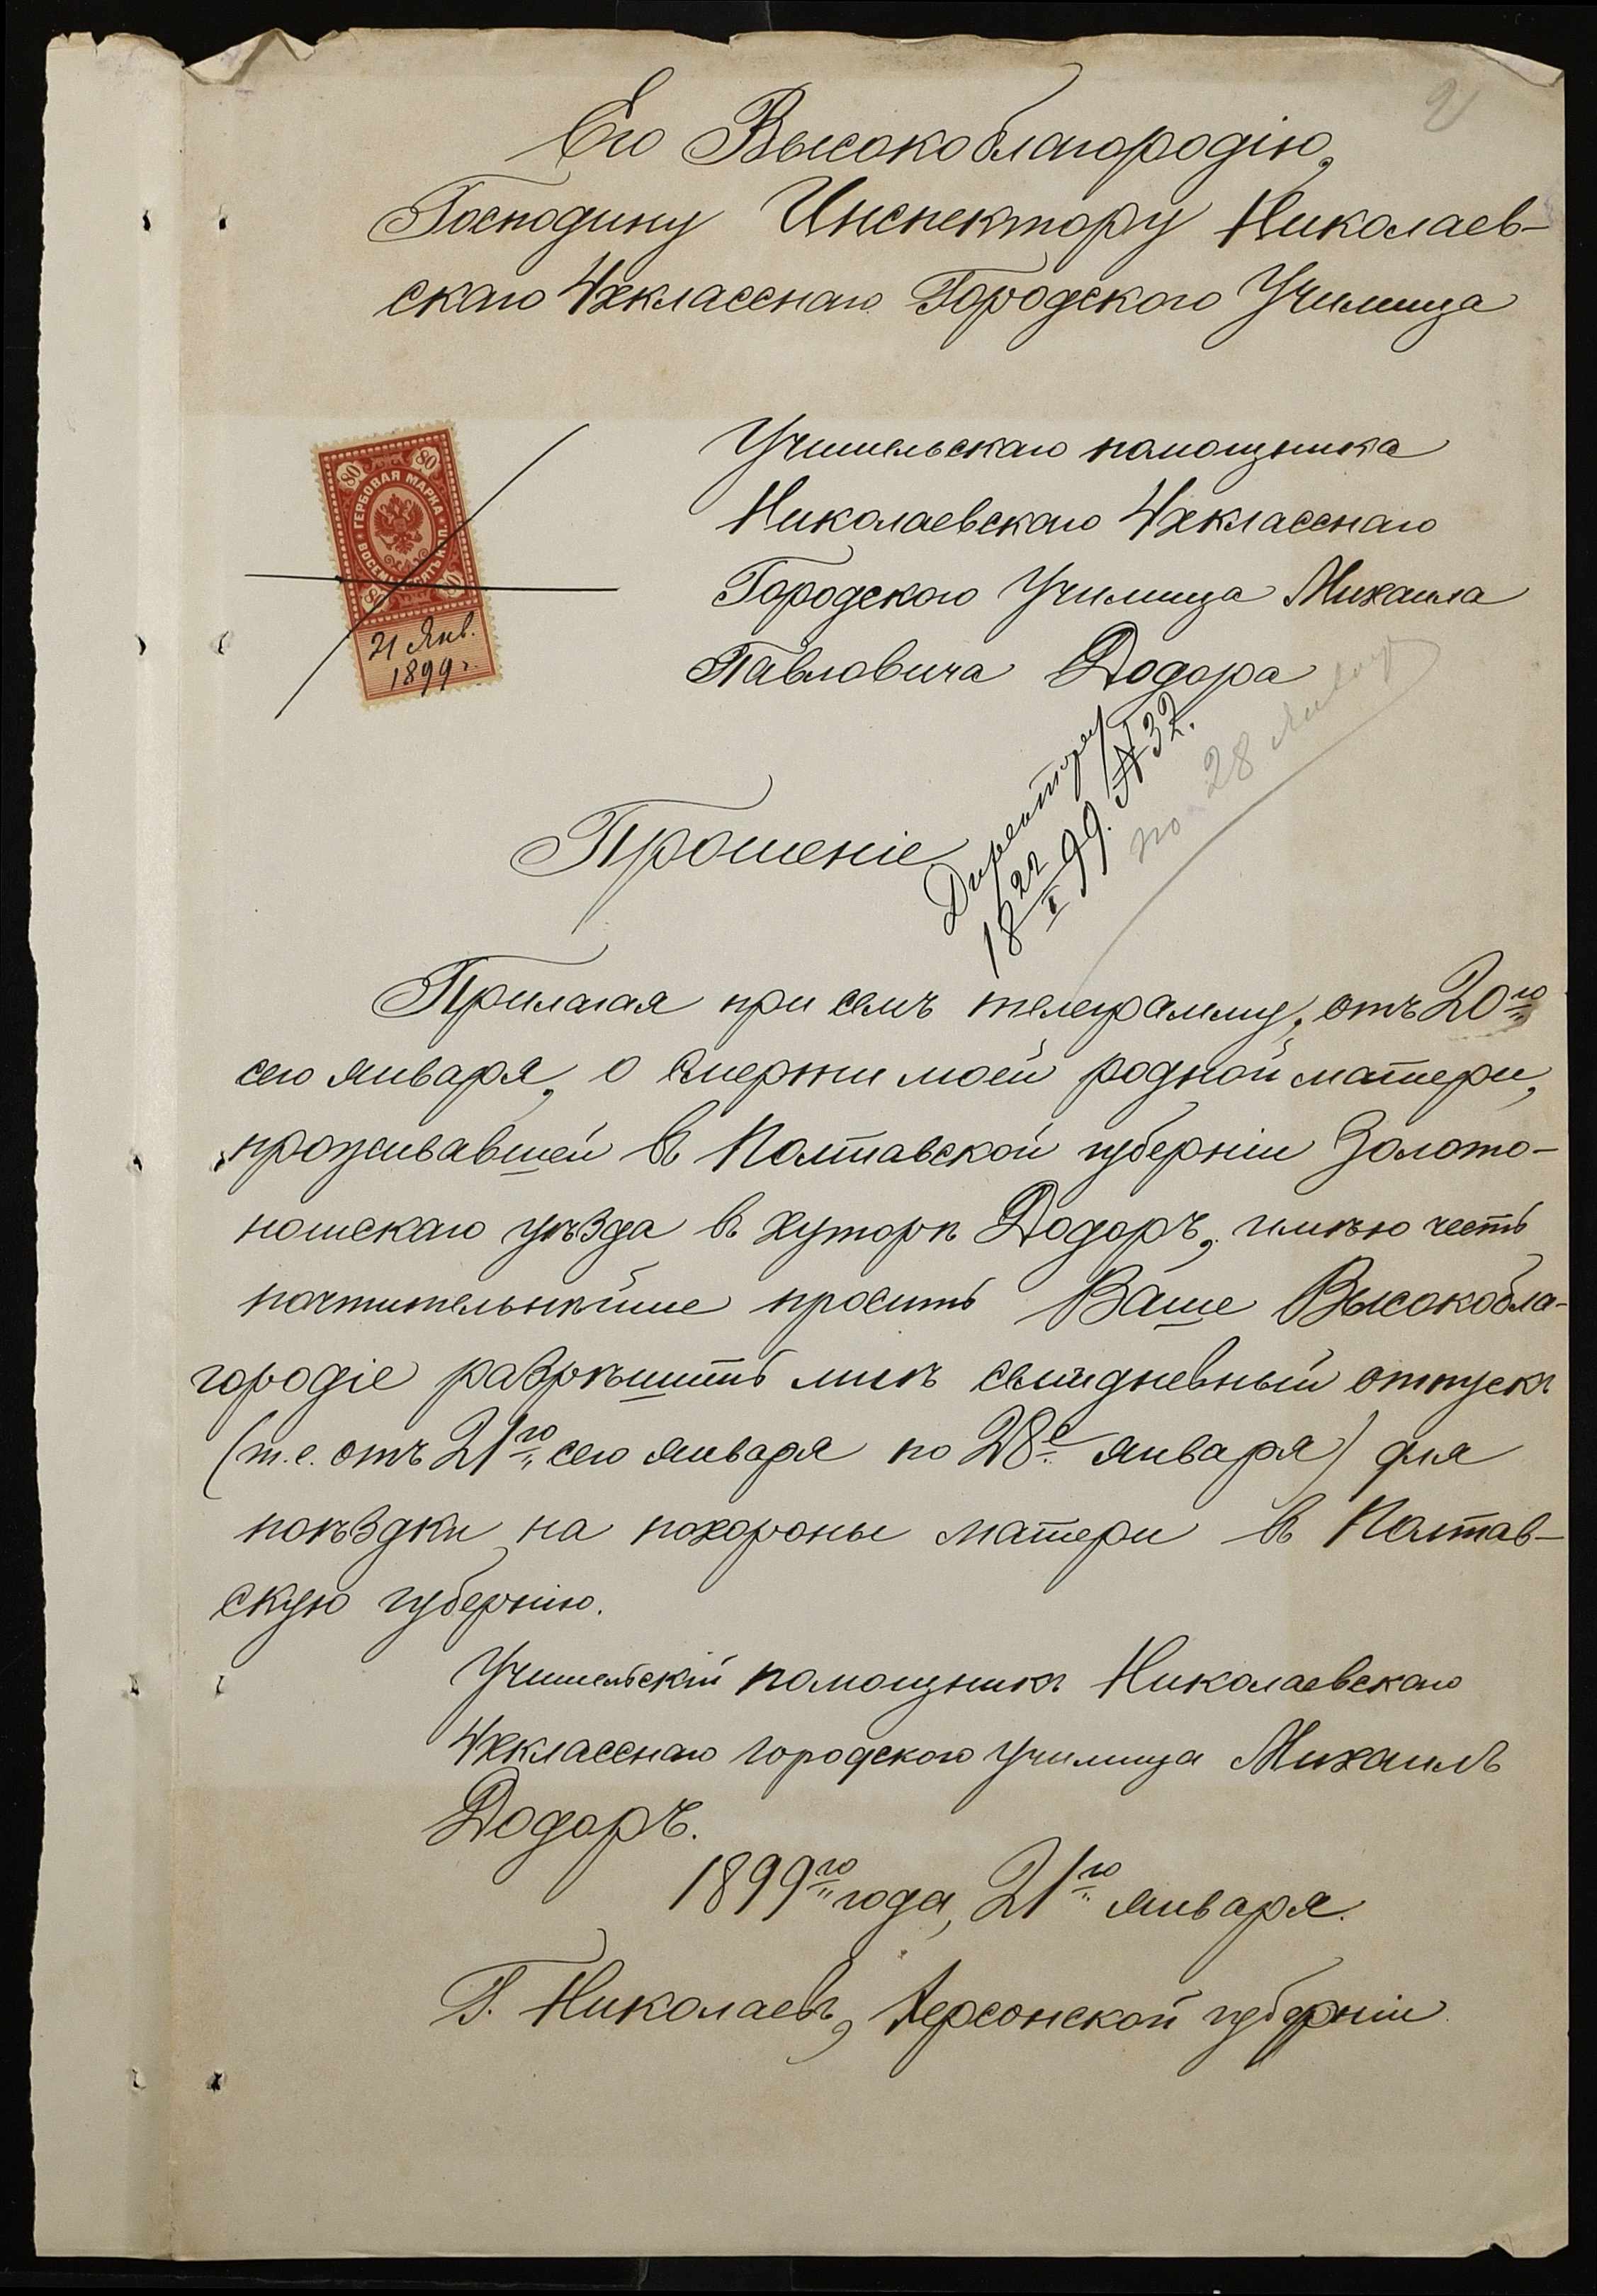 2
Его Высокоблагородію,
Господину Инспектору Николаев-
скаго 4хкласснаго Городского Училища
80 80
ГЕРБОВАЯ МАРКА
ВОСЕМЬДЕСЯТЪ КОП.
80 80
21 Янв.
1899 г.
Учительскаго помощника
Николаевскаго 4хкласснаго
Городского Училища Михаила
Павловича Додора
Директору
18 22/I 99. № 32.
по 28 Января
Прошеніе
Прилагая при семъ телеграмму, отъ 20го
сего января, о смерти моей родной матери,
проживавшей въ Полтавской губерніи Золото-
ношскаго уѣзда въ хуторѣ Додоръ, имѣю честь
почтительнѣйше просить Ваше Высокобла-
городіе разрѣшить мнѣ семидневный отпускъ
(т.е. отъ 21го сего января по 28е января) для
поѣздки на похороны матери въ Полтав-
скую губернію.
Учительскій помощникъ Николаевскаго
4хкласснаго городского училища Михаилъ
Додоръ.
1899го года, 21го января.
Г. Николаевъ, Херсонской губерніи